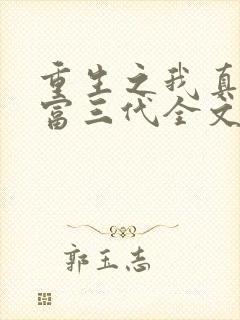 重生之我真
富三代全文
郭玉志